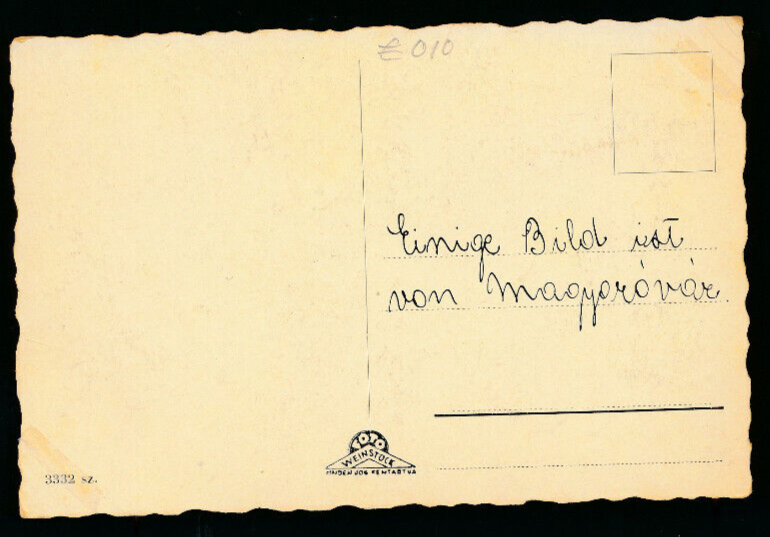 £ 010
Einige Bild ist
von Magyaróvár
FOTO
WEINSTOCK
MINDEN JOG FENTARTVA
3332 sz.